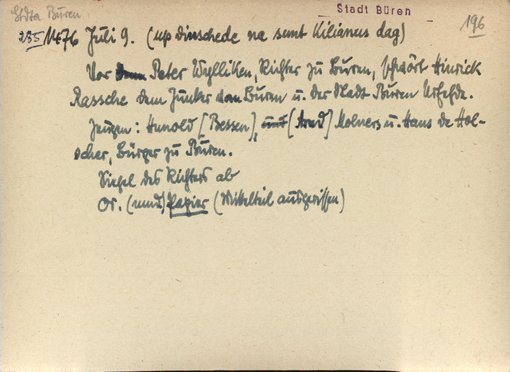 Stdta Büren.
Stadt Büren
196
235/1476 Juli 9. (up dinschede na sunt Kilianus dag)
Vor dem Peter Wylliken, Richter zu Büren, schwört Hinrick
Rassche dem Junker von Büren u. der Stadt Büren Urfehde.
Zeugen: Hunold [Bessen], und [Arnd] Molners u. Hans de Hol-
scher, Bürger zu Büren.
Siegel des Richters ab
Or. (mnd.) Papier (Mittelteil ausgerissen)